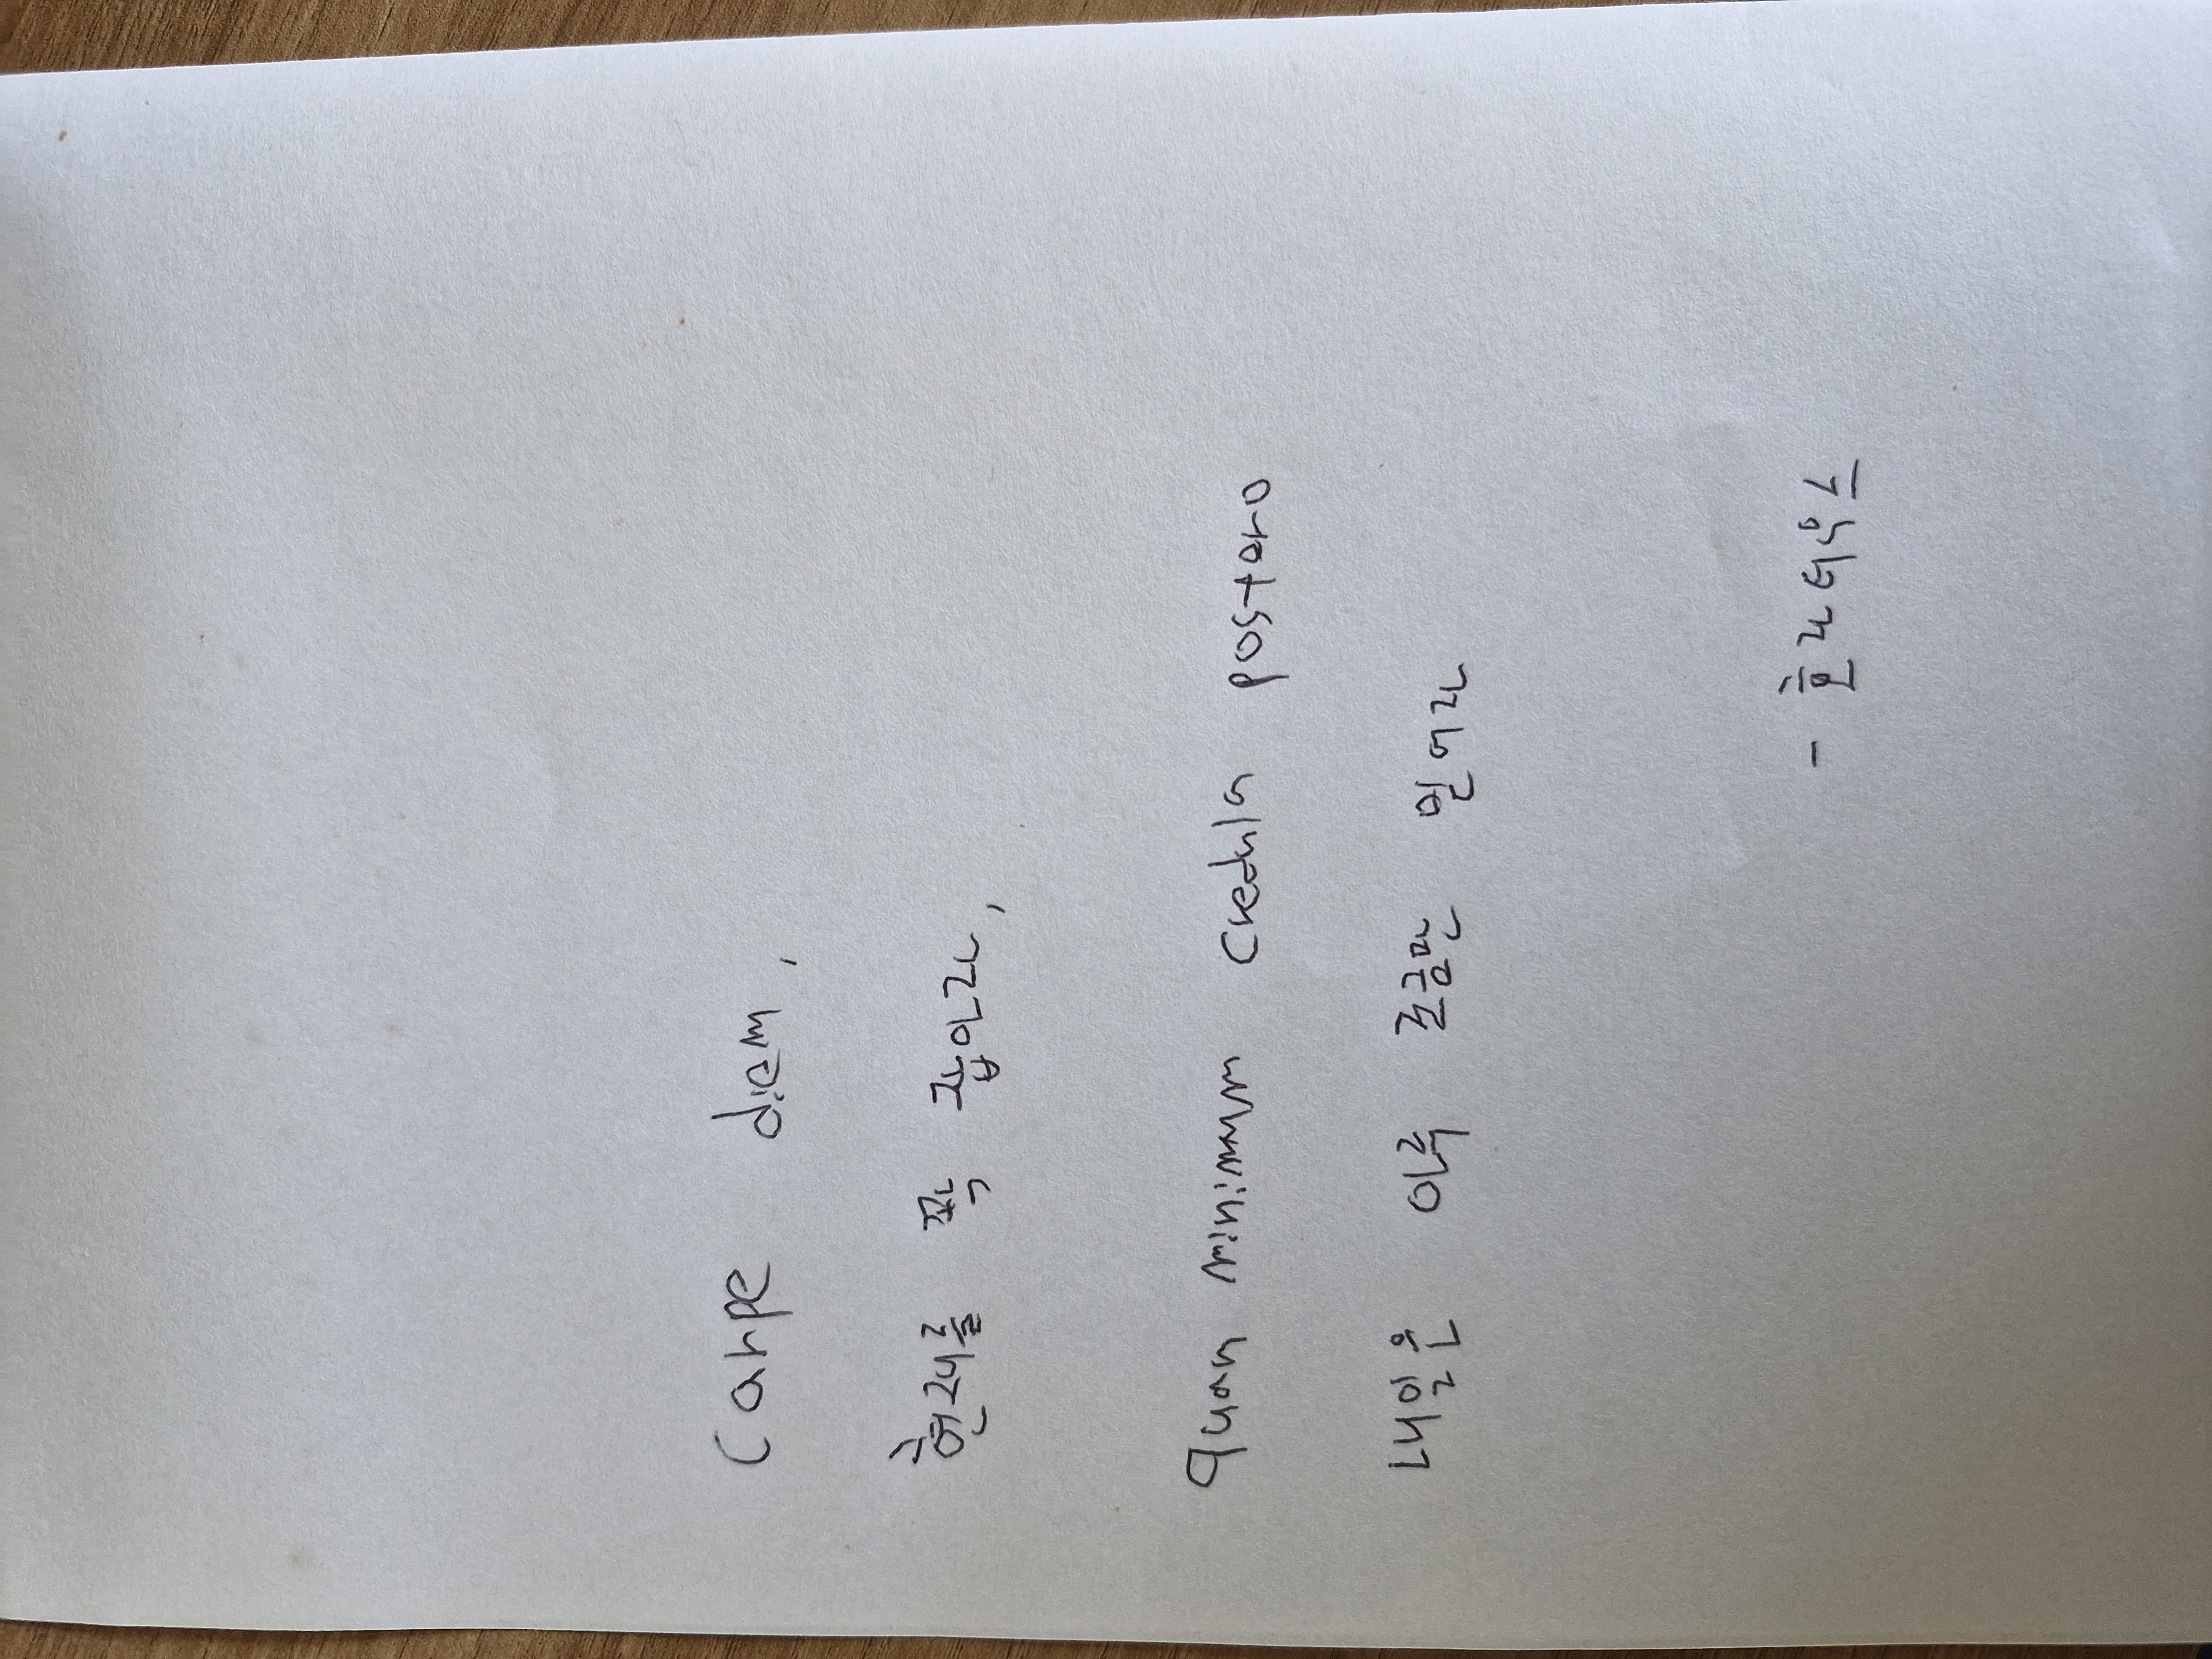 Carpe diem,
현재를 꽉 잡아라,
quam minimum credula postero
내일은 아주 조금만 믿어라
- 호라티우스